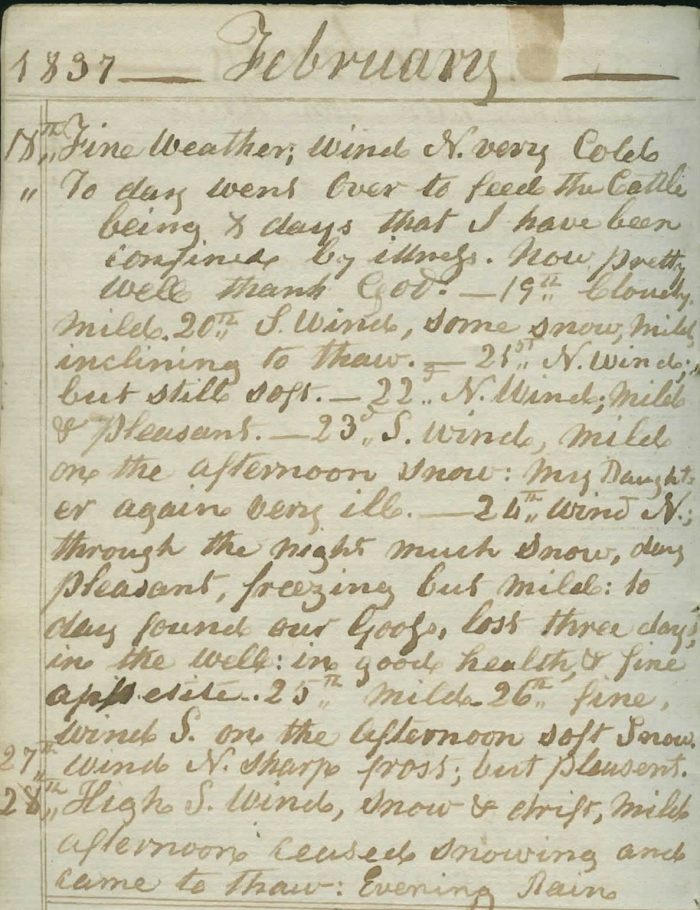 1837 — February —
18th„ Fine Weather; wind N. very Cold
„ To day went Over to feed the Cattle
being 8 days that I have been
confined by illness. Now pretty
well thank God. — 19th„ Cloudy,
mild. 20th„ S. Wind, some snow, mild
inclining to thaw. — 21st„ N. Wind;
but still soft. — 22d„ N. Wind; mild
& pleasant. — 23d„ S. wind, mild
on the afternoon snow: My Daught-
er again very ill. — 24th„ Wind N.:
through the night much snow, day
pleasant, freezing but mild: to
day found our Goose, lost three days,
in the well: in good health, & fine
appetite. 25th„ mild. 26th„ fine,
wind S. on the afternoon soft Snow.
27th„ Wind N. sharp frost; but pleasent.
28th„ High S. Wind, snow & drift, mild
afternoon ceased snowing and
came to thaw: Evening Rain